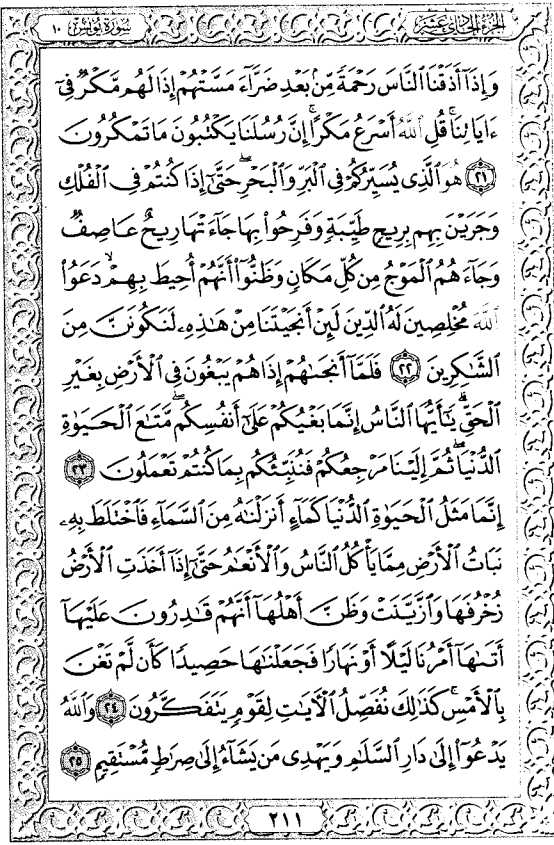 الجزء الحادي عشر
سورة يونس ١٠
وَإِذَآ أَذَقْنَا ٱلنَّاسَ رَحْمَةً مِّنۢ بَعْدِ ضَرَّآءَ مَسَّتْهُمْ إِذَا لَهُم مَّكْرٌ فِىٓ
ءَايَاتِنَا ۚ قُلِ ٱللَّهُ أَسْرَعُ مَكْرًا ۚ إِنَّ رُسُلَنَا يَكْتُبُونَ مَا تَمْكُرُونَ
٢١ هُوَ ٱلَّذِى يُسَيِّرُكُمْ فِى ٱلْبَرِّ وَٱلْبَحْرِ ۖ حَتَّىٰٓ إِذَا كُنتُمْ فِى ٱلْفُلْكِ
وَجَرَيْنَ بِهِم بِرِيحٍ طَيِّبَةٍ وَفَرِحُوا۟ بِهَا جَآءَتْهَا رِيحٌ عَاصِفٌ
وَجَآءَهُمُ ٱلْمَوْجُ مِن كُلِّ مَكَانٍ وَظَنُّوٓا۟ أَنَّهُمْ أُحِيطَ بِهِمْ ۙ دَعَوُا۟
ٱللَّهَ مُخْلِصِينَ لَهُ ٱلدِّينَ لَئِنْ أَنجَيْتَنَا مِنْ هَٰذِهِۦ لَنَكُونَنَّ مِنَ
ٱلشَّٰكِرِينَ ٢٢ فَلَمَّآ أَنجَىٰهُمْ إِذَا هُمْ يَبْغُونَ فِى ٱلْأَرْضِ بِغَيْرِ
ٱلْحَقِّ ۗ يَٰٓأَيُّهَا ٱلنَّاسُ إِنَّمَا بَغْيُكُمْ عَلَىٰٓ أَنفُسِكُم ۖ مَّتَٰعَ ٱلْحَيَوٰةِ
ٱلدُّنْيَا ۖ ثُمَّ إِلَيْنَا مَرْجِعُكُمْ فَنُنَبِّئُكُم بِمَا كُنتُمْ تَعْمَلُونَ ٢٣
إِنَّمَا مَثَلُ ٱلْحَيَوٰةِ ٱلدُّنْيَا كَمَآءٍ أَنزَلْنَٰهُ مِنَ ٱلسَّمَآءِ فَٱخْتَلَطَ بِهِۦ
نَبَاتُ ٱلْأَرْضِ مِمَّا يَأْكُلُ ٱلنَّاسُ وَٱلْأَنْعَٰمُ حَتَّىٰٓ إِذَآ أَخَذَتِ ٱلْأَرْضُ
زُخْرُفَهَا وَٱزَّيَّنَتْ وَظَنَّ أَهْلُهَآ أَنَّهُمْ قَٰدِرُونَ عَلَيْهَآ
أَتَىٰهَآ أَمْرُنَا لَيْلًا أَوْ نَهَارًا فَجَعَلْنَٰهَا حَصِيدًا كَأَن لَّمْ تَغْنَ
بِٱلْأَمْسِ ۚ كَذَٰلِكَ نُفَصِّلُ ٱلْءَايَٰتِ لِقَوْمٍ يَتَفَكَّرُونَ ٢٤ وَٱللَّهُ
يَدْعُوٓا۟ إِلَىٰ دَارِ ٱلسَّلَٰمِ وَيَهْدِى مَن يَشَآءُ إِلَىٰ صِرَٰطٍ مُّسْتَقِيمٍ ٢٥
٢١١